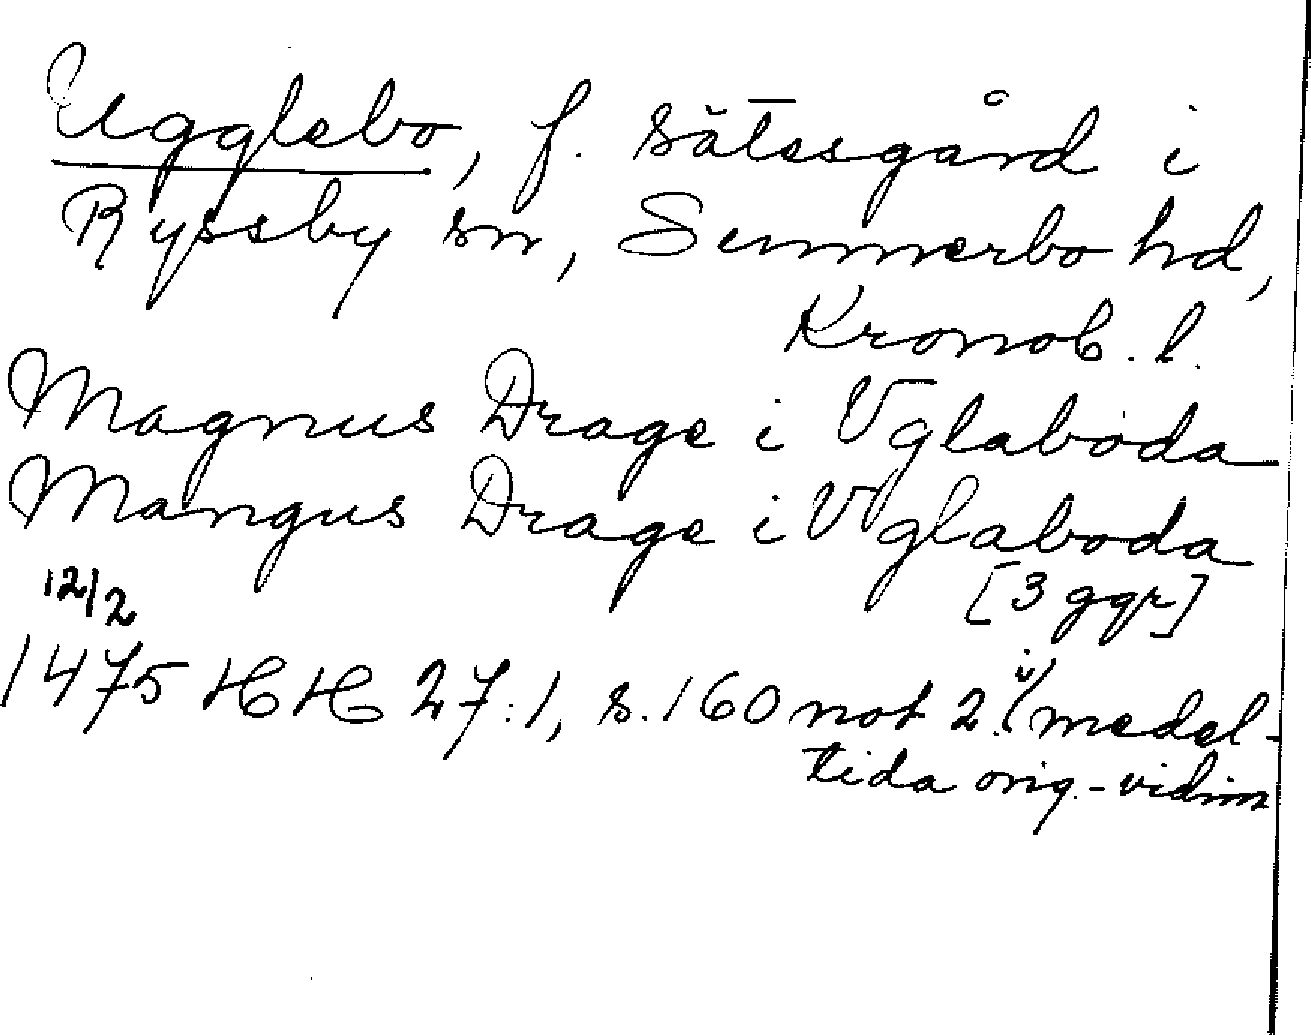 Ugglebo, f. sätesgård i
Ryssby sn, Sunnerbo hd,
Kronob. l.
Magnus Drage i Vglaboda
Mangus Drage i Vglaboda
[3 ggr]
12/2
1475 HH 27:1, s. 160 not 2. (medel-
tida orig.-vidim